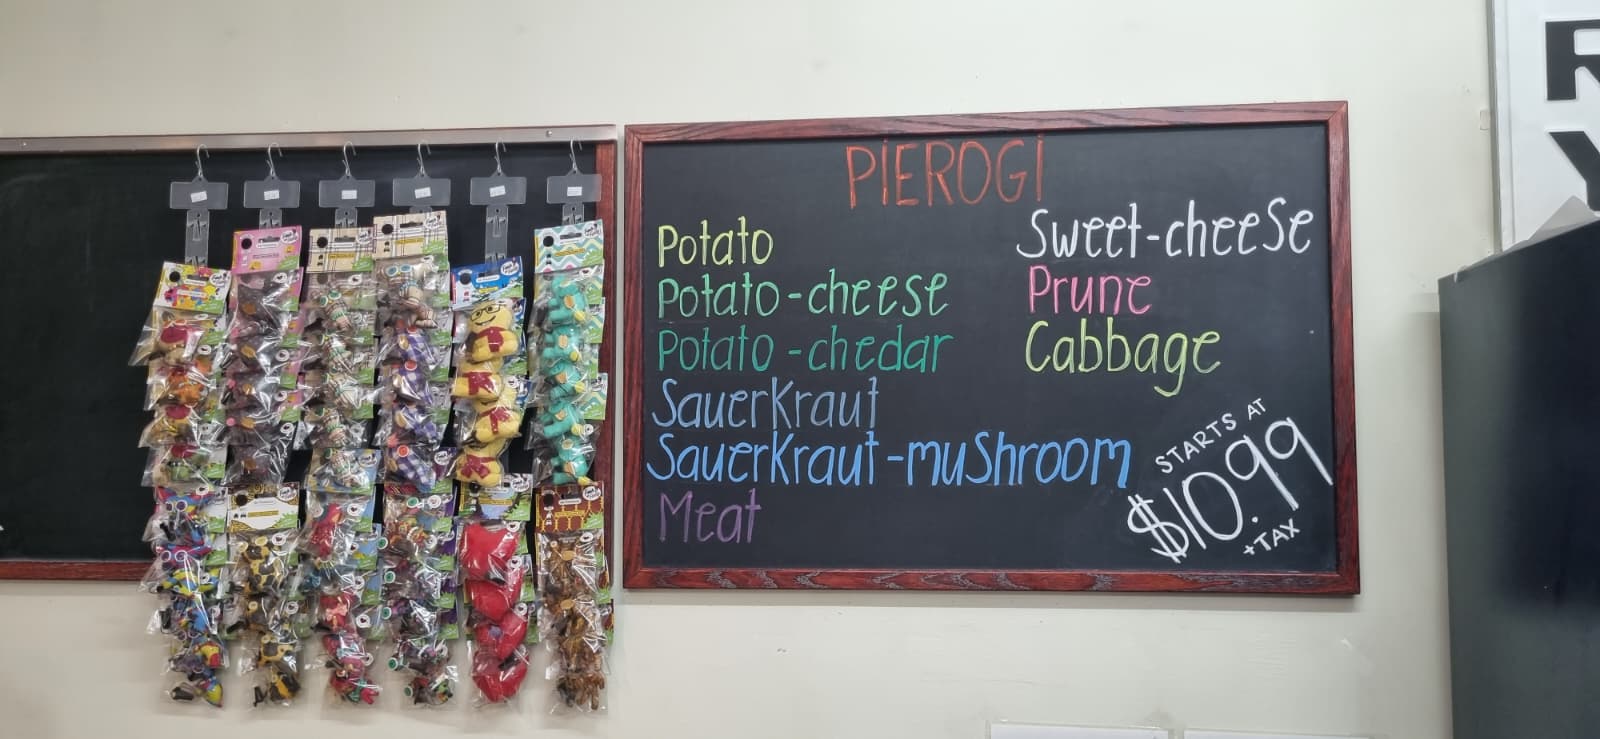 PIEROGI
Potato
Potato-cheese
Potato-chedar
Sauerkraut
Sauerkraut-mushroom
Meat
Sweet-cheese
Prune
Cabbage
STARTS AT
$10.99
+TAX
R
Y